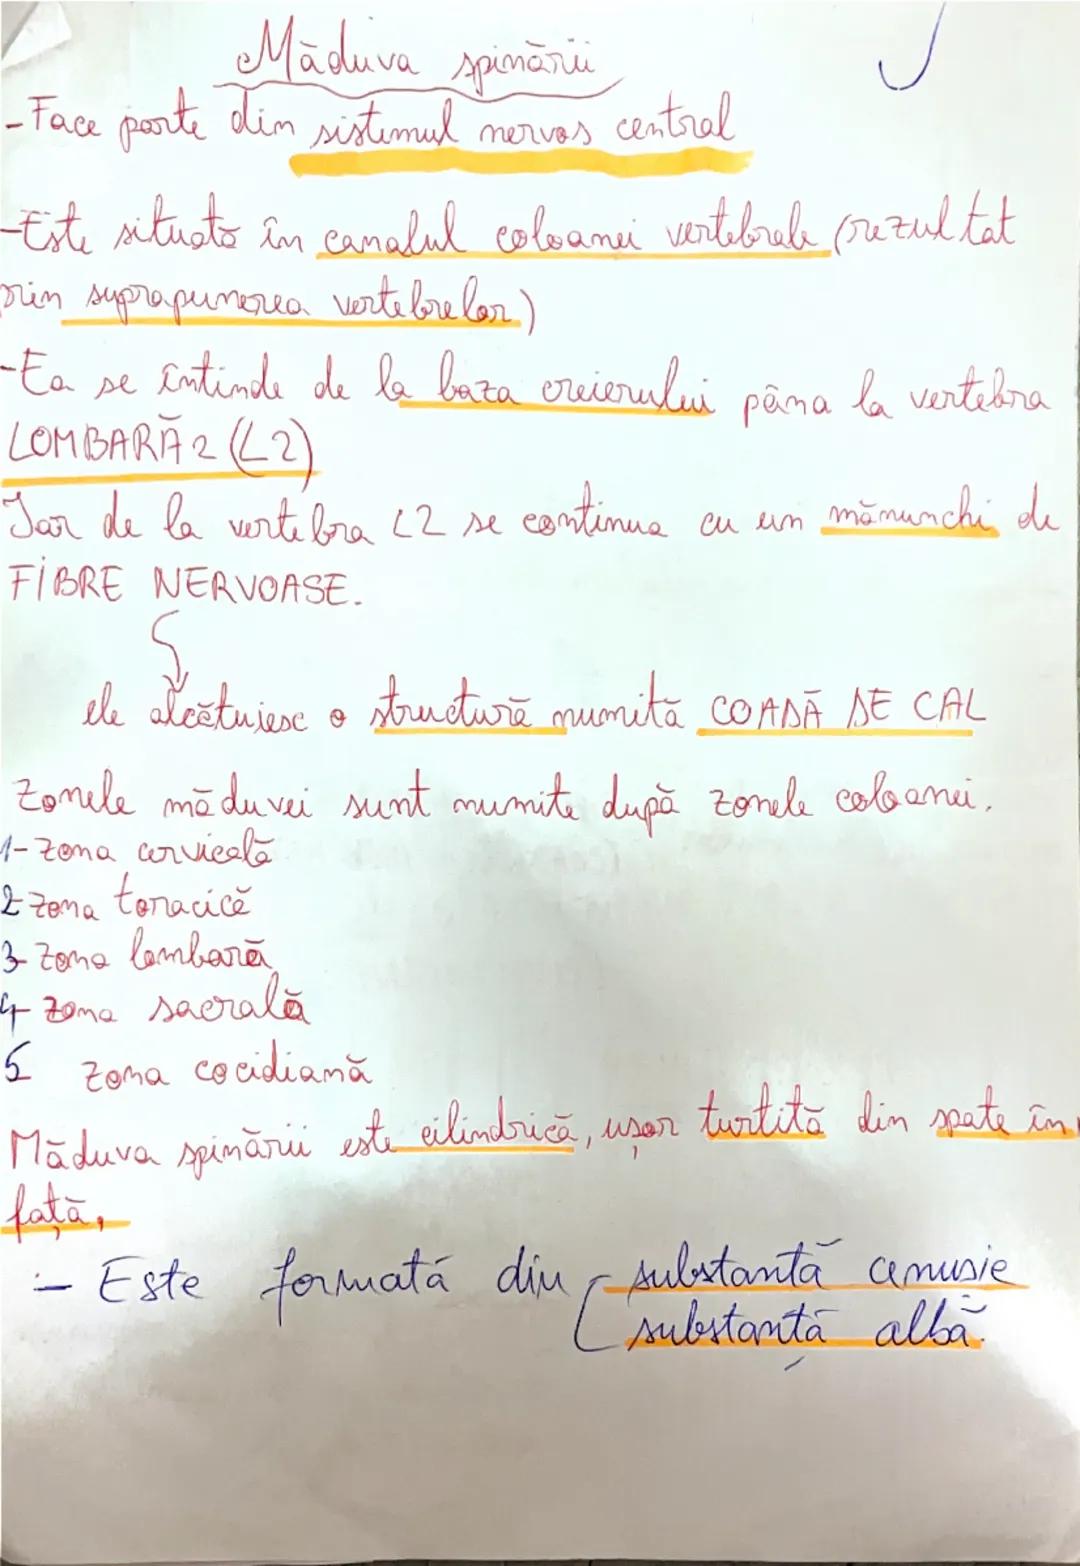 Măduva spinării
-Face parte din sistemul nervos central
-Este situată în canalul coloanei vertebrale (rezultat
prin suprapunerea vertebrelor)
-Ea se întinde de la baza creierului pâna la vertebra
LOMBARĂ 2 (L2)
Iar de la vertebra L2 se continua cu un mănunchi de
FIBRE NERVOASE.
ele alcătuiesc o structură numită COADĂ DE CAL
Zonele măduvei sunt numite după zonele coloanei.
1-zona cervicală
2-zona toracică
3-zona lombară
4-zona sacrală
5 zona cocidiană
Măduva spinării este cilindrică, ușor turtită din spate în
față,
- Este formată din substantă cenusie
substanță albă.